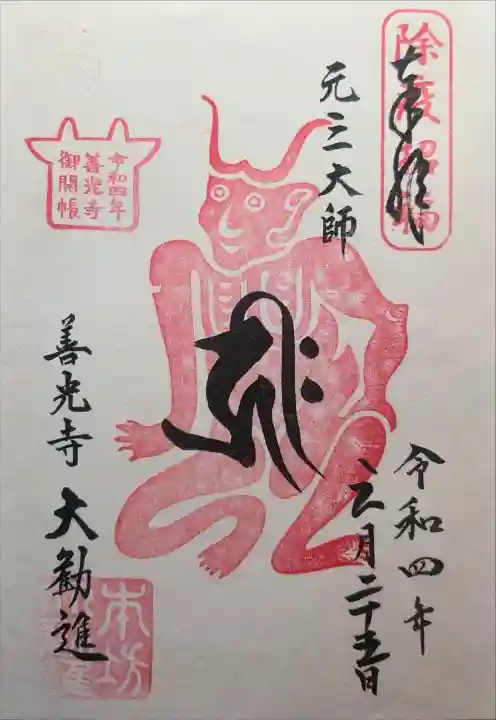 除疫招福
奉拝
元三大師
令和四年
善光寺
御開帳
令和四年
六月二十五日
善光寺
大勧進
本坊